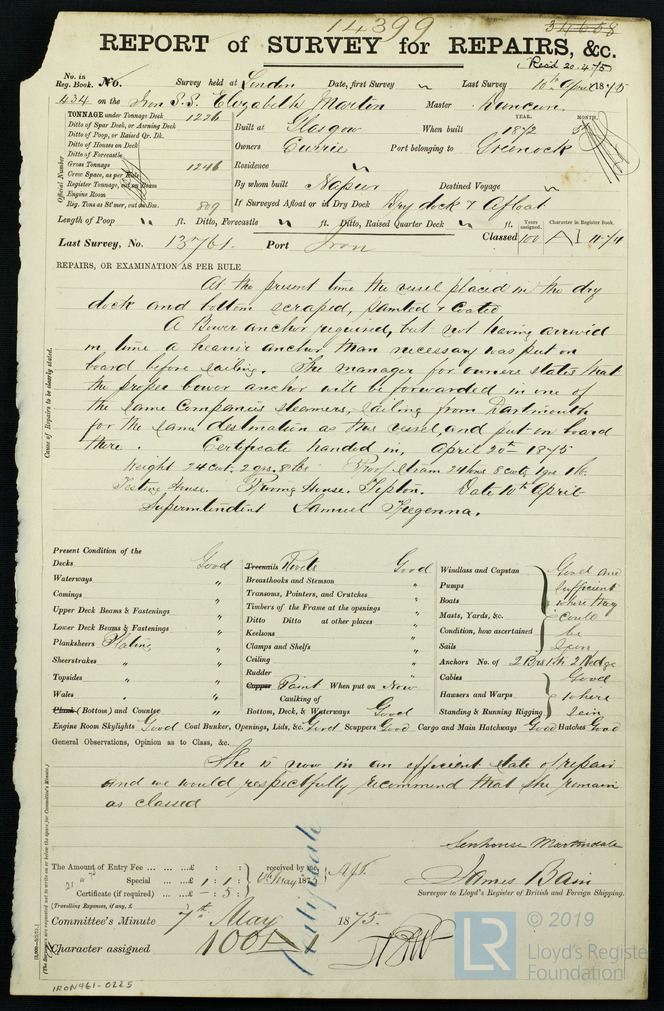 14399
34658
REPORT of SURVEY for REPAIRS, &c.
Recd 20.4/75
No. in Reg. Book. No. Survey held at London Date, first Survey " Last Survey 10th April 1875
434 on the Iron S.S. Elizabeth Martin Master Runciman
TONNAGE under Tonnage Deck 1226
Ditto of Spar Deck, or Awning Deck
Ditto of Poop, or Raised Qr. Dk.
Ditto of Houses on Deck
Ditto of Forecastle
Gross Tonnage 1246
Crew Space, as per Rule
Register Tonnage, cut on Beam
Engine Room
Reg. Tons as St'mer, cut on Bm. 809
Official Number
YEAR. MONTH.
Built at Glasgow When built 1872 5
Owners Currie Port belonging to Greenock
Residence "
By whom built Napier Destined Voyage "
If Surveyed Afloat or in Dry Dock Dry dock & Afloat
Length of Poop " ft. Ditto, Forecastle " ft. Ditto, Raised Quarter Deck " ft.
Years assigned. Character in Register Book.
Last Survey, No. 13761 Port Iron Classed 100 A 1 11/74
REPAIRS, OR EXAMINATION AS PER RULE
At the present time the vessel placed in the dry
dock and bottom scraped, painted & coated
A Bower anchor required, but not having arrived
in time a heavier anchor than necessary was put on
board before sailing. The manager for owners states that
the proper bower anchor will be forwarded in one of
the same Companies steamers, sailing from Dartmouth
for the same destination as this vessel, and put on board
there. Certificate handed in, April 20th 1875
Weight 24 cwt. 2 qrs. 8 lbs Proof strain 24 tons 8 cwts 1 qr 1 lb.
Testing House. Proving House. Tipton. Date 10th April
Superintendent Samuel
Cause of Repairs to be clearly stated.
Present Condition of the
Decks Good
Waterways "
Comings "
Upper Deck Beams & Fastenings "
Lower Deck Beams & Fastenings "
Planksheers Plating "
Sheerstrakes " "
Topsides " "
Wales " "
Plank (Bottom) and Counter "
Treenails Rivets Good
Breasthooks and Stemson "
Transoms, Pointers, and Crutches "
Timbers of the Frame at the openings "
Ditto Ditto at other places "
Keelsons "
Clamps and Shelfs "
Ceiling "
Rudder "
Copper Paint When put on Now
Caulking of
Bottom, Deck, & Waterways Good
Windlass and Capstan Good and
Pumps sufficient
Boats where they
Masts, Yards, &c. could
Condition, how ascertained be
Sails seen
Anchors No. of 2 Brs 1 St. 2 Kedge
Cables Good
Hausers and Warps where
Standing & Running Rigging seen
Engine Room Skylights Good Coal Bunker, Openings, Lids, &c. Good Scuppers Good Cargo and Main Hatchways Good Hatches Good
General Observations, Opinion as to Class, &c.
She is now in an efficient state of repair
and we would respectfully recommend that she remain
as classed
Senhouse Martindale
James Bain
Surveyor to Lloyd's Register of British and Foreign Shipping.
The Amount of Entry Fee ... ... ... £ : : received by
Special ... ... £ 1 : 1 : May 1875
Certificate (if required) ... £ – : 5 :
(Travelling Expenses, if any, £ )
Certificate
Committee's Minute 7th May 1875.
Character assigned 100 A 1
IRON461-0225
© 2019
LR Lloyd's Register Foundation